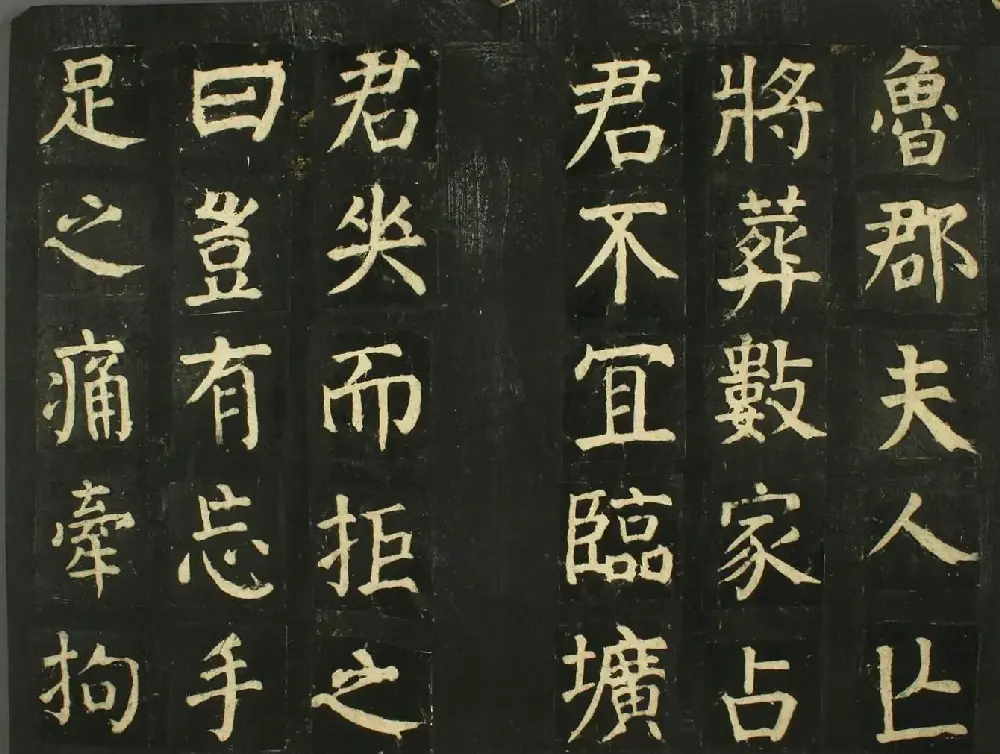 魯郡夫人亡
將葬數家占
君不冝臨壙
君㘴而拒之
曰豈有忘手
足之痛牽拘